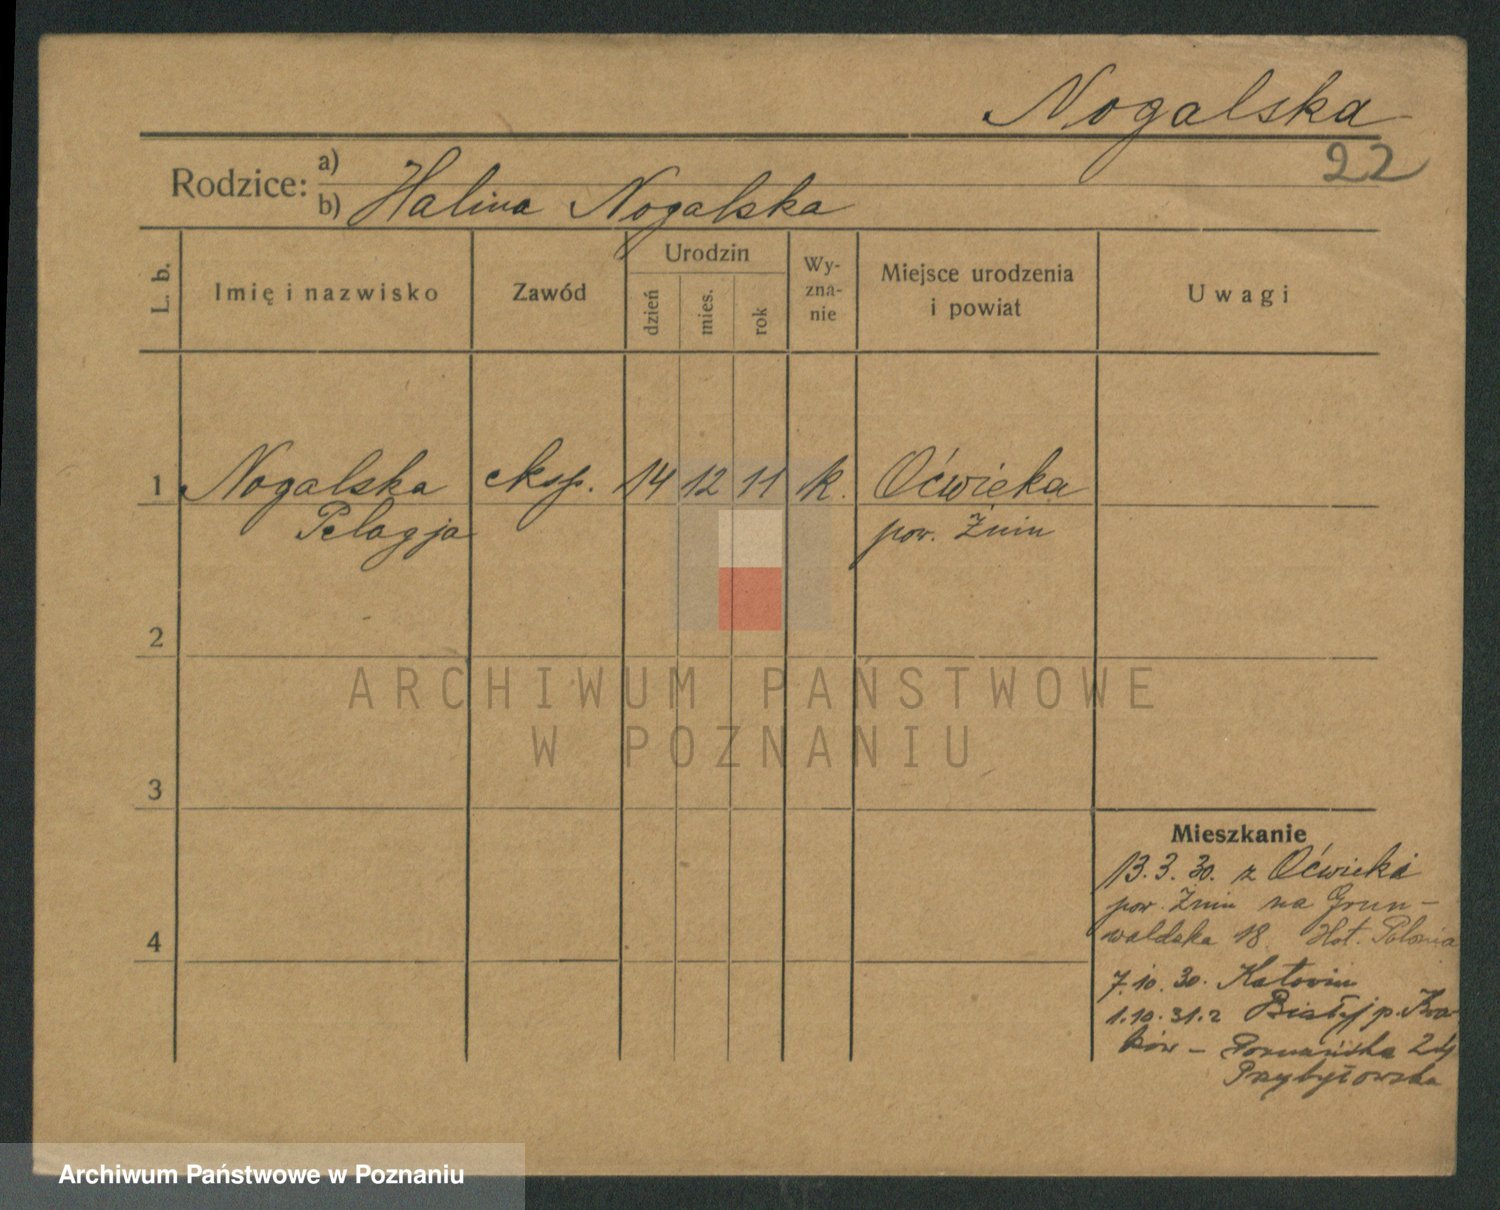 Nogalska
22
Rodzice: a)
b) Halina Nogalska
L. b.
Imię i nazwisko
Zawód
Urodzin
dzień
mies.
rok
Wy-
zna-
nie
Miejsce urodzenia
i powiat
Uwagi
1 Nogalska eksp. 14 12 11 k. Oćwieka
Pelagja pow. Żnin
2
ARCHIWUM PAŃSTWOWE
W POZNANIU
3
Mieszkanie
13.3.30. z Oćwieki
pow. Żnin na Grun-
4
waldska 18 Hot. Polonia
7.10.30.
1.10.31. z Białej p. Kra-
ków – Poznańska 24
Przybyłowska
Archiwum Państwowe w Poznaniu